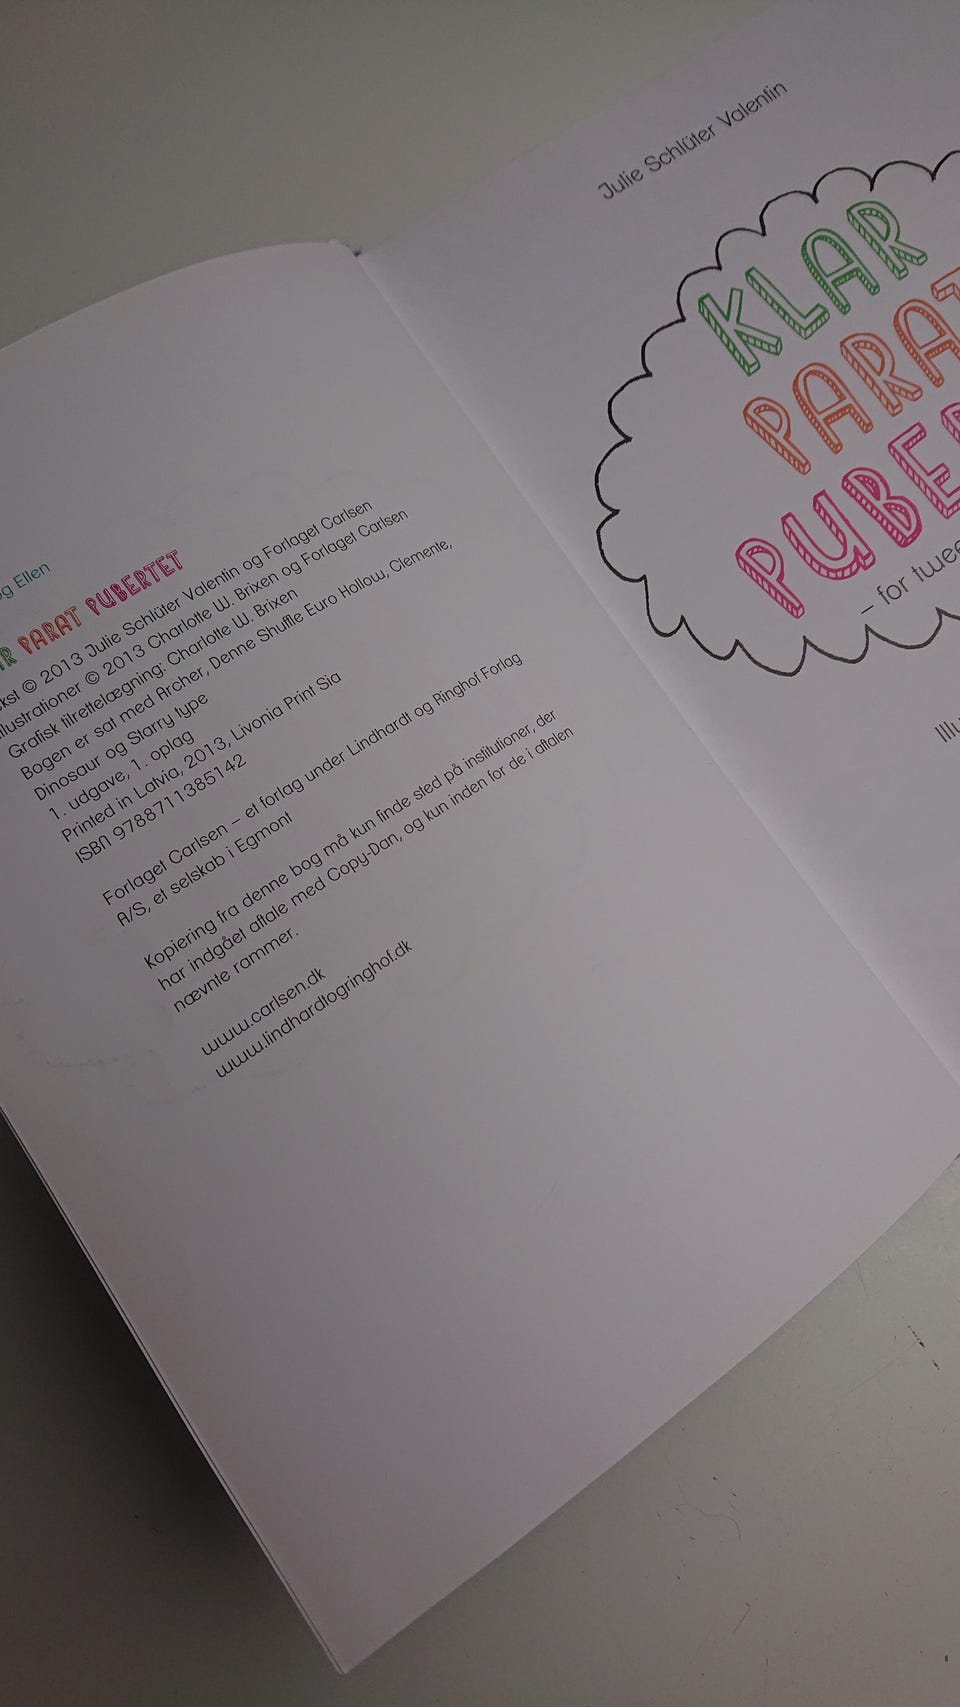 og Ellen
PARAT PUBERTET
© 2013 Julie Schlüter Valentin og Forlaget Carlsen
Illustrationer © 2013 Charlotte W. Brixen og Forlaget Carlsen
Grafisk tilrettelægning: Charlotte W. Brixen
Bogen er sat med Archer, Denne Shuffle Euro Hollow, Clemente,
Dinosaur og Starry type
1. udgave, 1. oplag
Printed in Latvia, 2013, Livonia Print Sia
ISBN 9788711385142
Forlaget Carlsen – et forlag under Lindhardt og Ringhof Forlag
A/S, et selskab i Egmont
Kopiering fra denne bog må kun finde sted på institutioner, der
har indgået aftale med Copy-Dan, og kun inden for de i aftalen
nævnte rammer.
www.carlsen.dk
www.lindhardtogringhof.dk
Julie Schlüter Valentin
KLAR
PARAT
– for